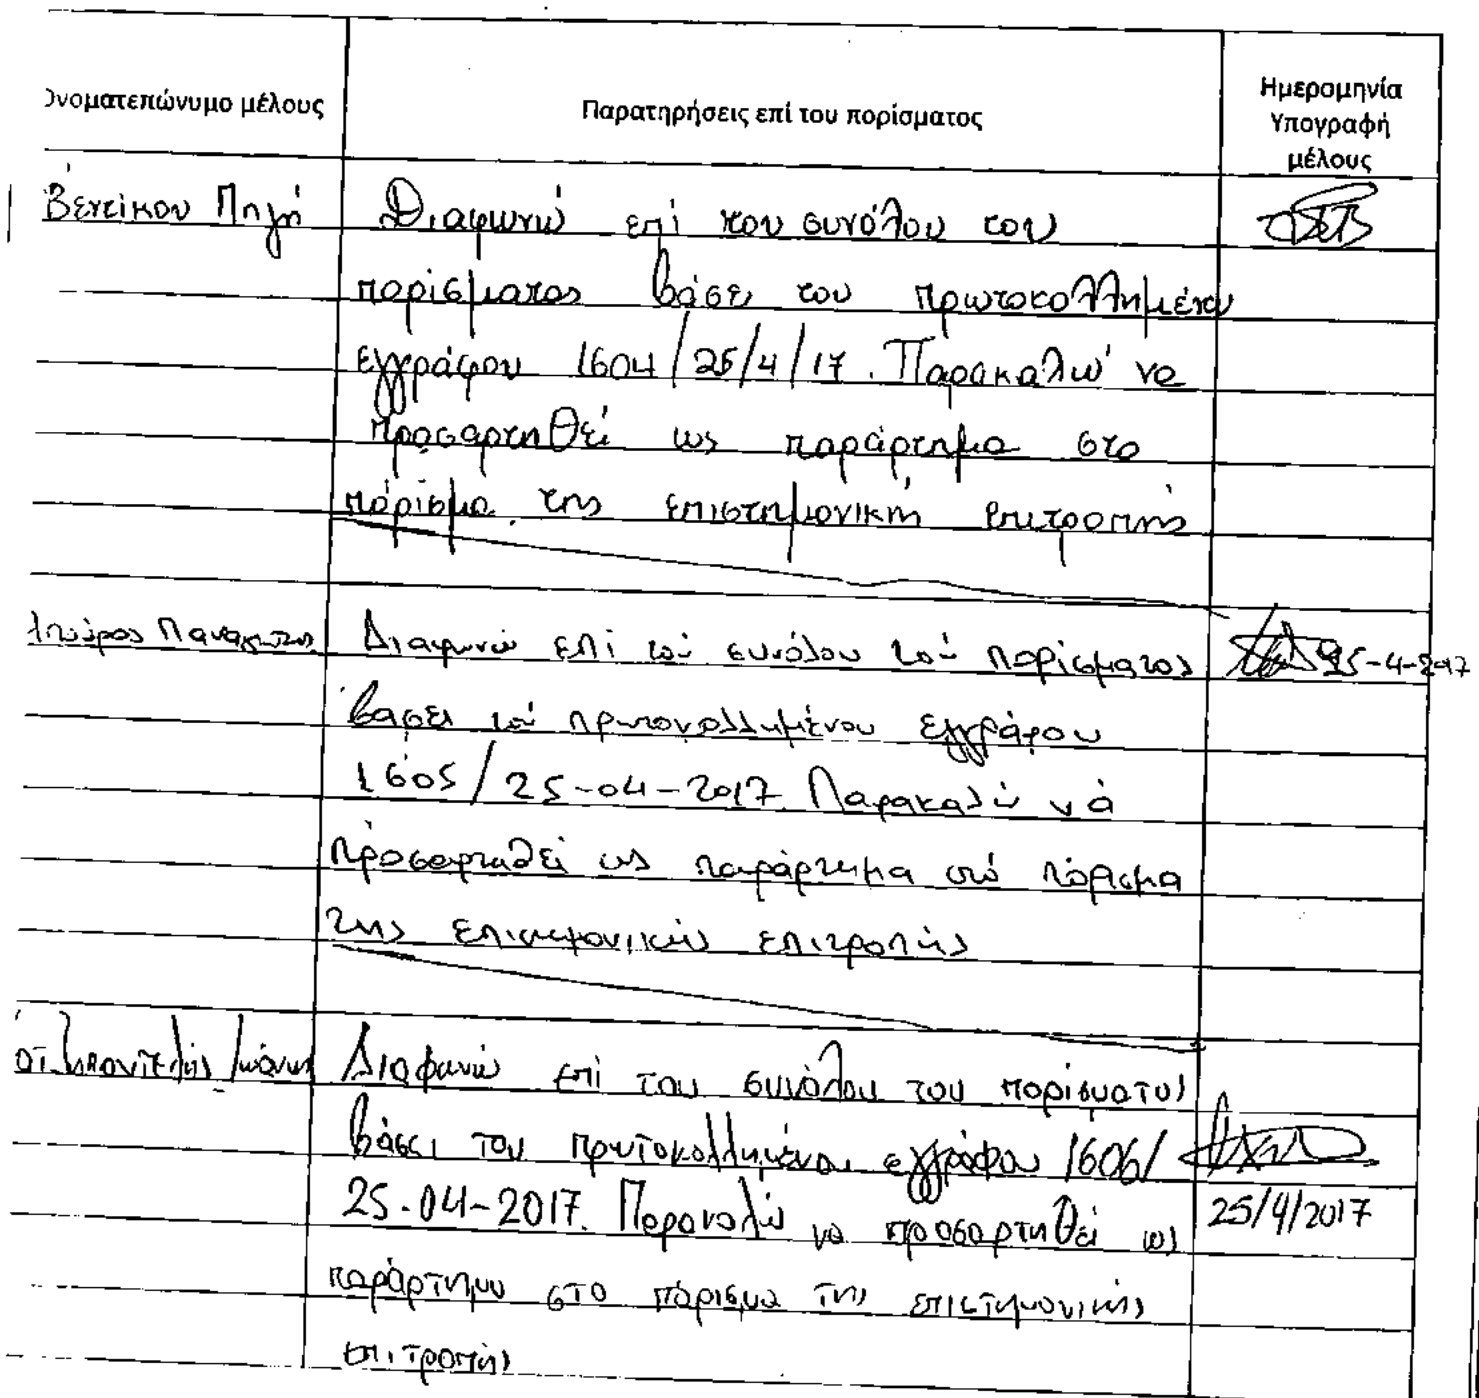 Ονοματεπώνυμο μέλους
Παρατηρήσεις επί του πορίσματος
Ημερομηνία
Υπογραφή
μέλους
Βεντίκου Πηγή
Διαφωνώ επί του συνόλου του
πορίσματος βάσει του πρωτοκολλημένου
εγγράφου 1604/25/4/17. Παρακαλώ να
προσαρτηθεί ως παράρτημα στο
πόρισμα της επιστημονικής επιτροπής
Παναγιώτης
Διαφωνώ επί τού συνόλου τού πορίσματος
25-4-2017
βάσει τού πρωτοκολλημένου εγγράφου
1605/25-04-2017. Παρακαλώ νά
προσαρτηθεί ως παράρτημα στό πόρισμα
της επιστημονικής επιτροπής
Ιωάννης
Διαφωνώ επί του συνόλου του πορίσματος
βάσει του πρωτοκολλημένου εγγράφου 1606/
25-04-2017. Παρακαλώ να προσαρτηθεί ως
25/4/2017
παράρτημα στο πόρισμα της επιστημονικής
επιτροπής